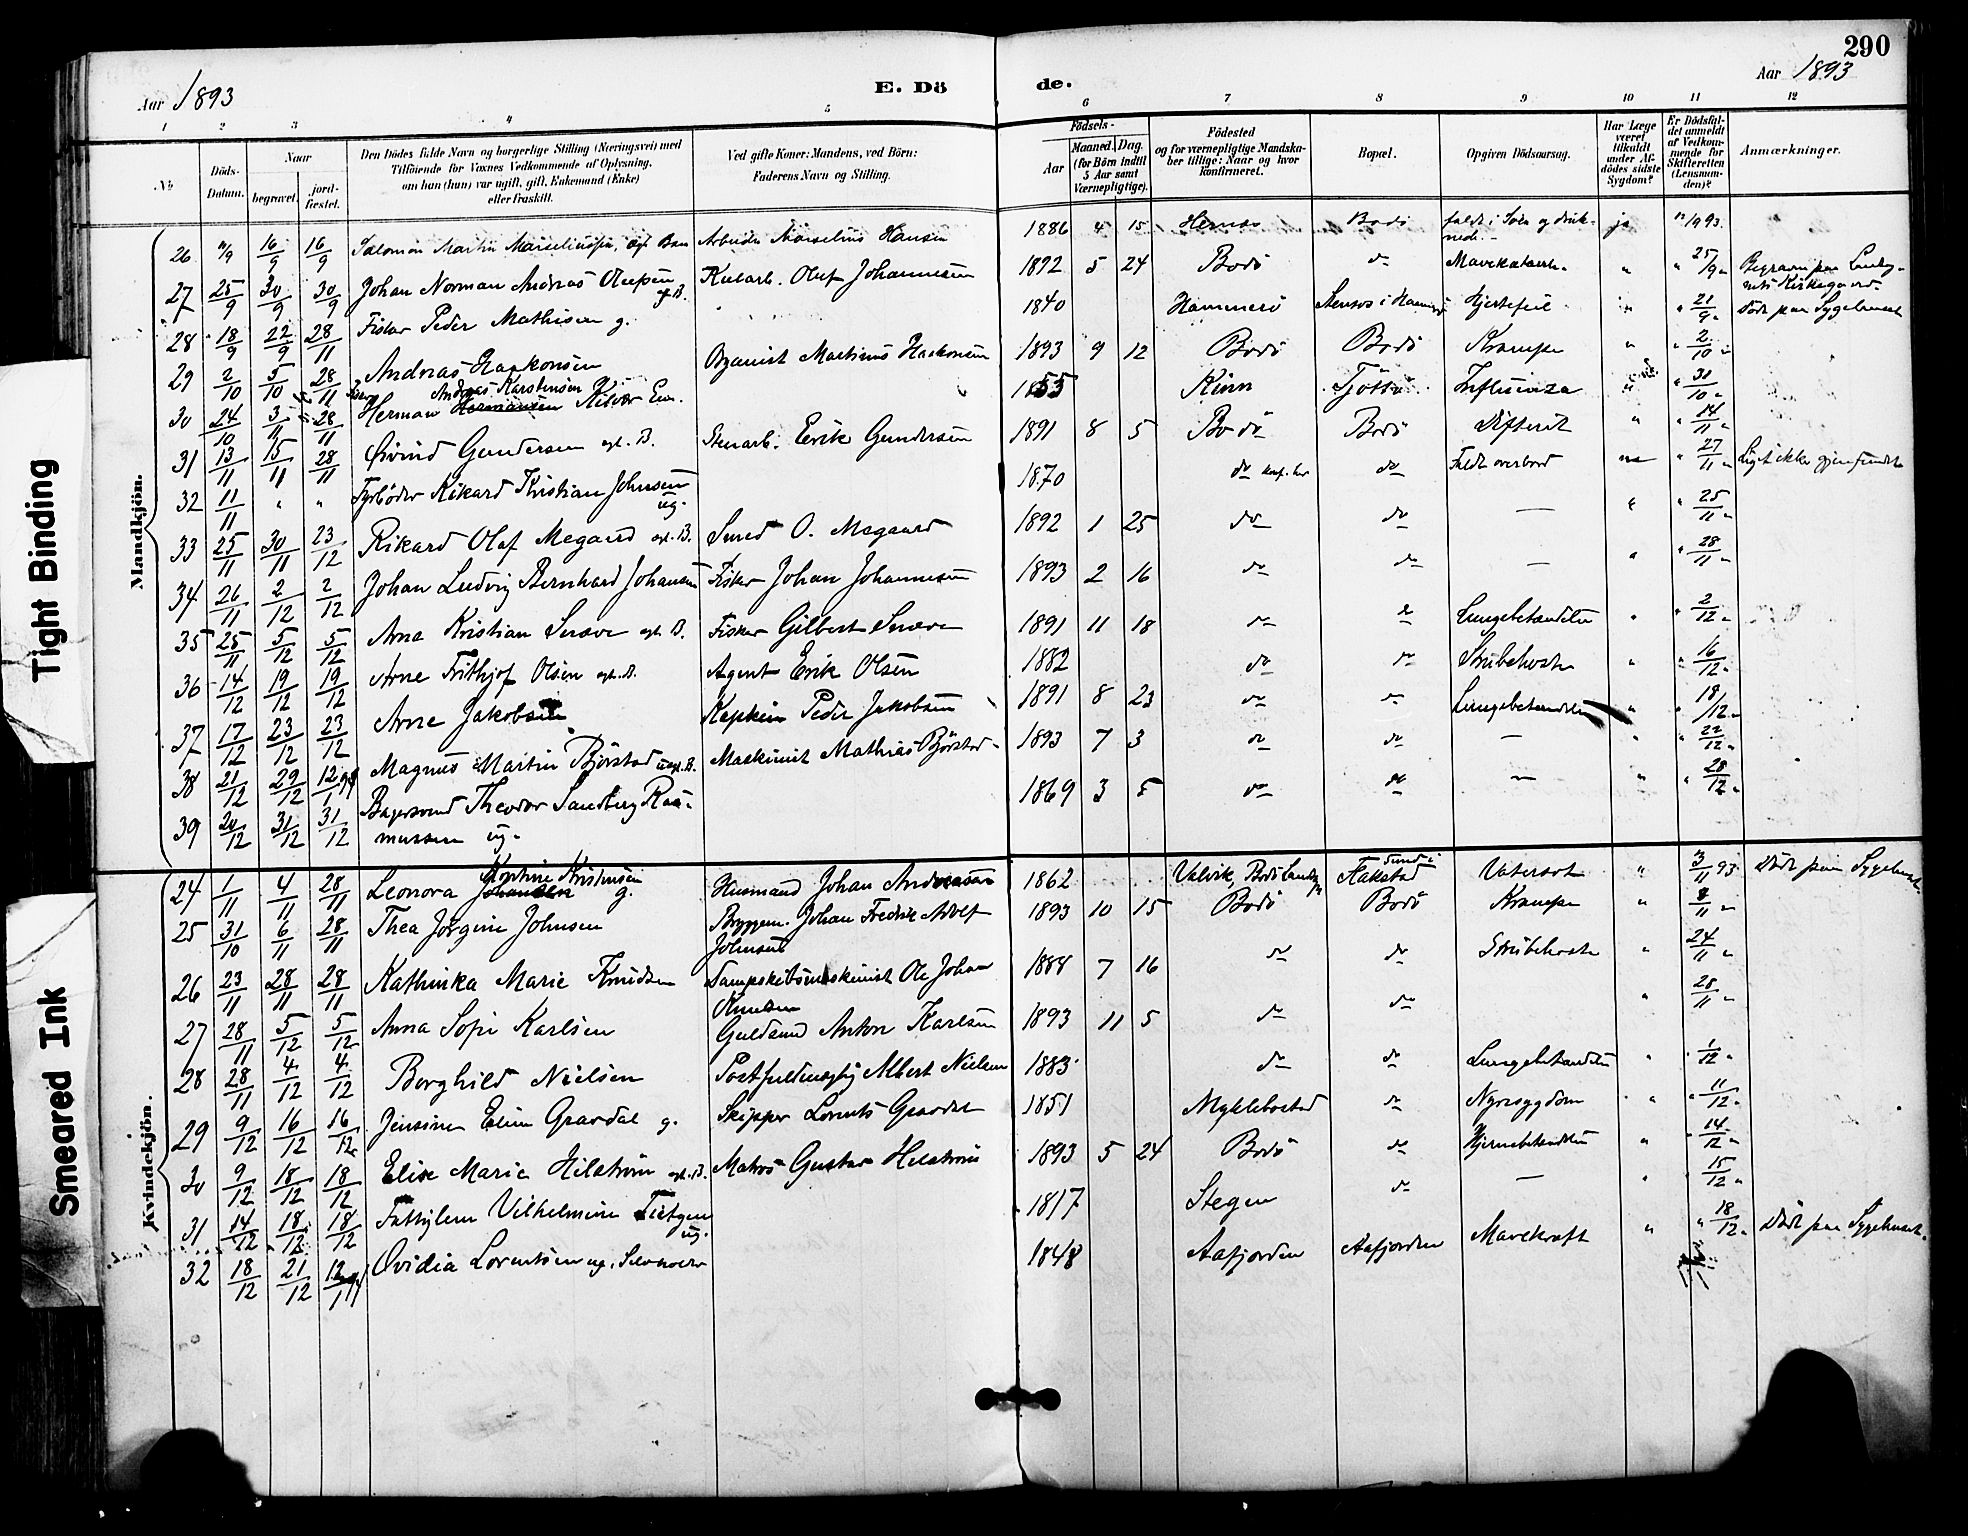 290
Aar 1893
E. Dö
de.
Aar 1893
1 2 3 4 5 6 7 8 9 10 11 12
No
Döds-Datum.
Naar
begravet.
jord-fæstet.
Den Dödes fulde Navn og borgerlige Stilling (Næringsvei) med
Tilföiende for Voxnes Vedkommende af Oplysning,
om han (hun) var ugift, gift, Enkemand (Enke)
eller fraskilt.
Ved gifte Koner: Mandens, ved Börn:
Faderens Navn og Stilling.
Födsels-
Aar
Maaned. Dag.
(for Börn indtil
5 Aar samt
Værnepligtige).
Födested
og for værnepligtige Mandska-
ber tillige: Naar og hvor
konfirmeret.
Bopæl.
Opgiven Dödsaarsag.
Har Læge
været
tilkaldt
under Af-
dödes sidste
Sygdom?
Er Dödsfal-
det anmeldt
af Vedkom-
mende for
Skifteretten
(Lensman-
den)?
Anmærkninger.
Mandkjön.
26 11/9 16/9 16/9 Salomon Martin Marselius Arbeider Marselius Hansen 1886 4 15 Hernæs Bodö faldt i Söen og druk-
nede. ja 12/9 93.
27 25/9 30/9 30/9 Johan Norman Andreas Olufsen Kularb. Oluf Johannesen 1892 5 24 Bodö do Mavekatarrh. " " 25/9 " Begravn paa Lands-
nets Kirkegaard.
28 18/9 22/9 28/11 Fisker Peder Mathisen g. 1840 Hammerö Hjertefeil " " 21/9 " Döde paa Sygehuset
29 2/10 5/10 28/11 Andreas Haakonsen Organist Martinus Haakonsen 1893 9 12 Bodö Bodö Krampe " " 2/10 "
Andreas Karstensen
30 24/10 3/11 28/11 Herman Hermansen Kilvær Em. 1855 Kinn Tjötta Influenza " " 31/10 "
31 13/11 15/11 28/11 Öivind Gundersen egt. B. Stenarb. Eerik Gundersen 1891 8 5 Bodö Bodö Difterit " " 14/11 "
32 11/11 " " Fyrböder Rikard Kristian Johnsen ug. 1870 do konf. her do Faldt overbord " 27/11 " Liget ikke gjenfundet
33 25/11 30/11 23/12 Rikard Olaf Megaard egt. B. Smed O. Megaard 1892 1 25 do do — " " 25/11 "
34 26/11 2/12 2/12 Johan Ludvig Bernhard Johansen Fisker Johan Johannesen 1893 2 16 do do — " " 28/11 "
35 25/11 5/12 5/12 Arne Kristian Snæve egt. B. Fisker Gilbert Snæve 1891 11 18 do do Lungebetændelse " " 2/12 "
36 14/12 19/12 19/12 Arne Frithjof Olsen egt. B. Agent Erik Olsen 1882 do do Strubehoste " " 16/12 "
37 17/12 23/12 23/12 Arne Jakobsen Kaptein Peder Jakobsen 1891 8 23 do do Lungebetændelse " 18/12 "
38 21/12 29/12 12/1 94 Magnus Martin Björstad uegt. B. Maskinist Mathias Björstad 1893 7 3 do do — " " 22/12 "
39 20/12 31/12 31/12 Bagersvend Theodor Sandberg Ras-
mussen ug. 1869 3 5 do do — " " 28/12 "
Kvindekjön.
Kristine Kristensen
24 1/11 4/11 28/11 Leonora Johansen g. Husmand Johan Andreasen 1862 Valvik, Bodö Landsg Sund i
Fakstad Vatersot " 3/11 93 Döde paa Sygehuset.
25 31/10 6/11 28/11 Thea Jörgine Johnsen Bryggem. Johan Fredrik Adolf
Johnsen 1893 10 15 Bodö Bodö Krampe " 8/11 "
26 23/11 28/11 28/11 Kathinka Marie Knudsen Dampskibsmaskinist Ole Johan
Knudsen 1888 7 16 do do Strubehoste " 24/11 "
27 28/11 5/12 5/12 Anna Sofie Karlsen Guldsmed Anton Karlsen 1893 11 5 do do " 28/11 "
28 28/11 4/12 4/12 Borghild Nielsen Postfuldmægtig Albert Nielsen 1883 do do Lungebetændelse " 1/12 "
29 9/12 16/12 16/12 Jensine Eline Gravdal g. Skipper Lorents Gravdal 1851 Myklebostad do Nyresygdom " " 11/12 "
30 9/12 18/12 18/12 Elise Marie Hilström egt. B. Matros Gustav Hilström 1893 5 24 Bodö do Hjernebetændelse " " 14/12 "
31 14/12 18/12 18/12 Vilhelmine ug. 1817 Stegen do — " " 15/12 "
32 18/12 21/12 12/1 94 Ovidia Lorentsen ug. 1848 Aafjorden Aafjorden Mavekræft " " 18/12 " Döde paa Sygehuset.
Tight Binding
Smeared Ink